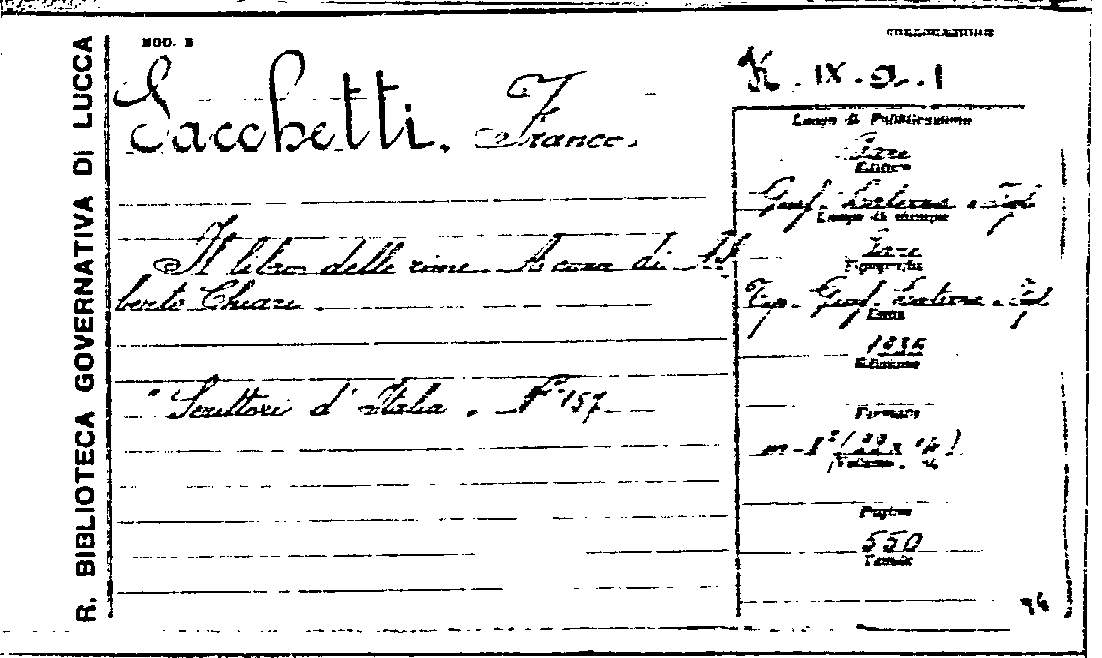 R. BIBLIOTECA GOVERNATIVA DI LUCCA
MOD. B
COLLOCAZIONE
K. IX. 2. 1
Sacchetti, Franco.
Luogo di Pubblicazione
Bari
Editore
Gius. Laterza e Figli
Luogo di stampa
Bari
Tipografia
Tip. Gius. Laterza e Figli
Data
1936
Edizione
Formato
in-8° (22 x 14)
Volume
Pagine
550
Tavole
Il libro delle rime. A cura di Al
berto Chiari.
"Scrittori d'Italia. N° 157